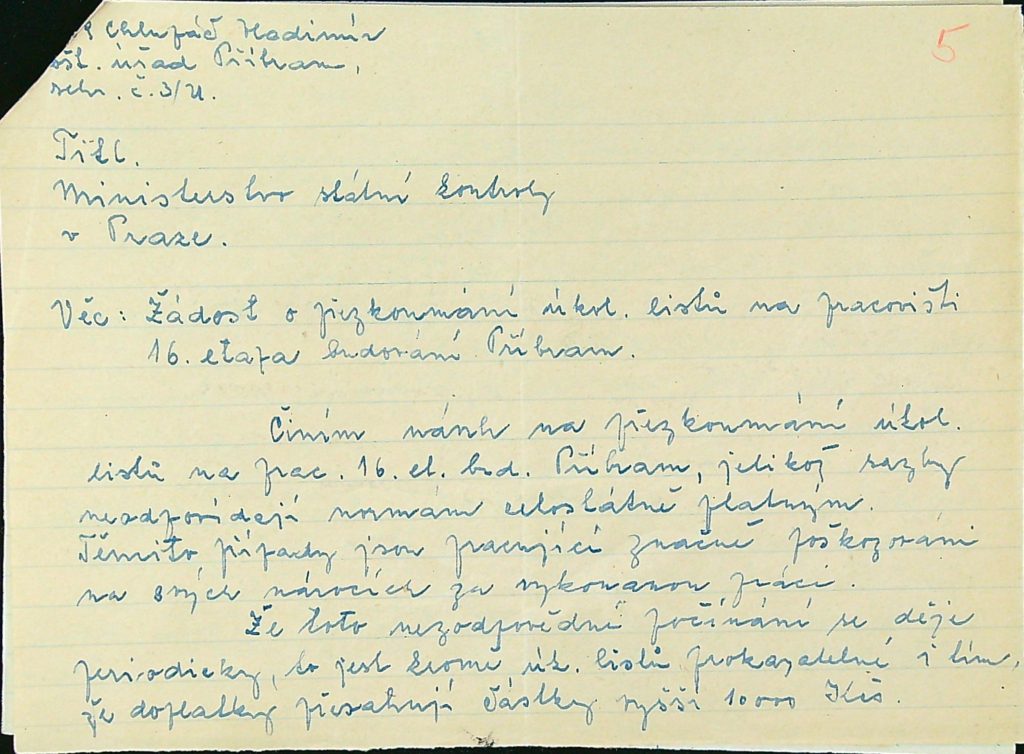 Chlupáč Vladimír
pošt. úřad Příbram,
schr. č. 3/U.
5
Titl.
Ministerstvo státní kontroly
v Praze.
Věc: Žádost o přezkoumání úkol. listů na pracovišti
16. etapa budování Příbram.
Činím návrh na přezkoumání úkol.
listů na prac. 16. et. bud. Příbram, jelikož sazby
neodpovídají normám celostátně platným.
Těmito případy jsou pracující značně poškozováni
na svých nárocích za vykonanou práci.
Že toto nezodpovědné počínání se děje
periodicky, to jest kromě úk. listů prokazatelné i tím,
že doplatky přesahují částky vyšší 10000 Kčs.